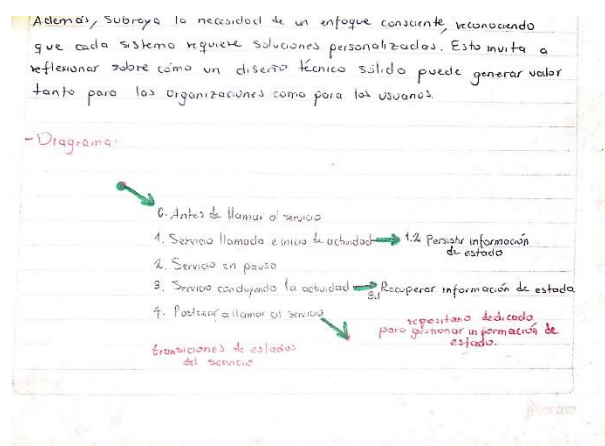 Además, subraya la necesidad de un enfoque consciente, reconociendo
que cada sistema requiere soluciones personalizadas. Esto invita a
reflexionar sobre cómo un diseño técnico sólido puede generar valor
tanto para las organizaciones como para los usuarios.
- Diagrama:
0. Antes de llamar al servicio
1. Servicio llamado e inicio de actividad 1.2 Persistir información
de estado
2. Servicio en pausa
3. Servicio concluyendo la actividad 3.1 Recuperar información de estado
4. Posterior a llamar al servicio
repositorio dedicado
para gestionar información de
estado.
transiciones de estados
del servicio
Norma